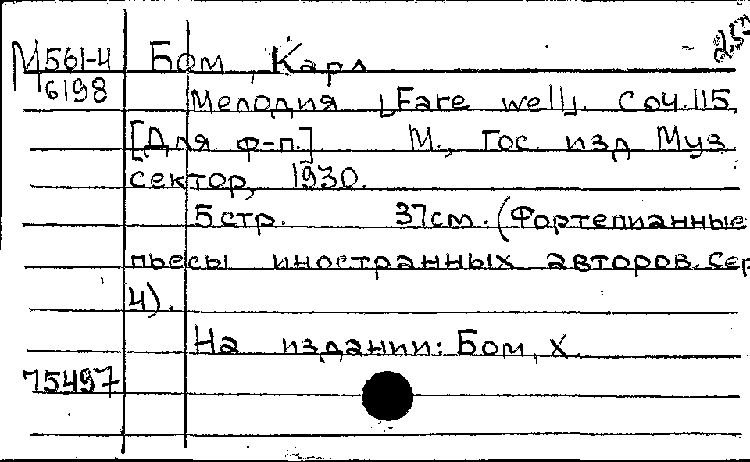 25
М 561-4 Бом, Карл
6198
Мелодия [Fare well]. Соч. 115.
[Для ф-п.] М., Гос. изд. Муз
сектор, 1930.
5 стр. 37 см. (Фортепианные
пьесы иностранных авторов. Сер
4).
На издании: Бом, Х.
75497